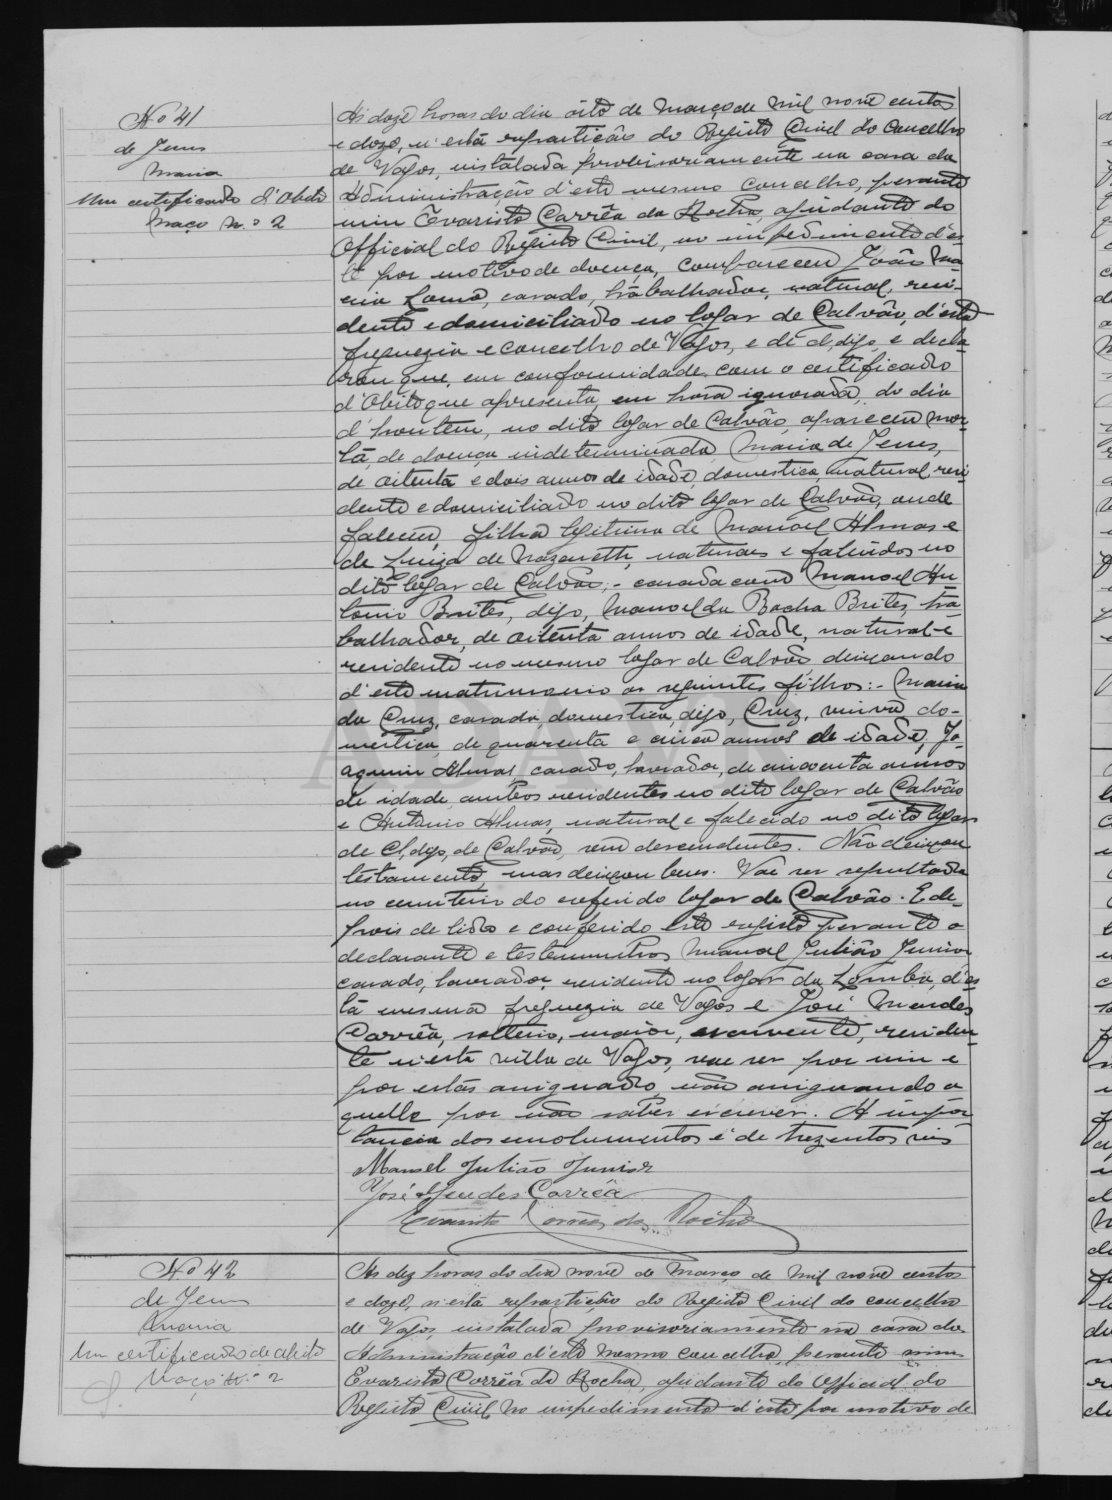 Nº 41
de Jesus
Maria
Um certificado d'obito
Maço n.º 2
Ás doze horas do dia oito de Março de mil nove centos
e doze, n'esta repartição do Registo Civil do Concelho
de Vagos, instalada provisoriamente na casa da
Administração d'este mesmo concelho, perante
mim Evaristo Corrêa da Rocha, ajudante do
Official do Registo Civil, no impedimento d'es-
te por motivo de doença, compareceu João Ma-
ria Lomo, casado, trabalhador, natural, resi-
dente e domiciliado no logar de Calvão, d'esta
freguezia e concelho de Vagos, e de cl, digo, e decla-
rou que, em conformidade com o certificado
d'obito que apresenta, em hora ignorada, do dia
d'hontem, no dito logar de Calvão, apareceu mor-
ta, de doença indeterminada Maria de Jesus,
de oitenta e dois annos de idade, domestica, natural, resi
dente e domiciliada no dito logar de Calvão, onde
faleceu, filha legitima de Manoel Almas e
de Luiza de Nazareth, naturaes e falecidos no
dito logar de Calvão; - casada com Manoel An
tonio Brites, digo, Manoel da Rocha Brites, tra
balhador, de oitenta annos de idade, natural e
residente no mesmo logar de Calvão, deixando
d'este matrimonio os seguintes filhos: - Maria
da Cruz, casada, domestica, digo, Cruz, viuva do-
mestica, de quarenta e cinco annos de idade, Jo-
aquim Almas, casado, lavrador, de cincoenta annos
de idade, ambos residentes no dito logar de Calvão
e Antonio Almas, natural e falecido no dito logar
de Cl, digo, de Calvão, sem descendentes. Não deixou
testamento, mas deixou bens. Vae ser sepultada
no cemiterio do referido logar de Calvão. E de-
pois de lido e conferido este registo perante o
declarante e testemunhas Manoel Julião Junior,
casado, lavrador, residente no logar da Lomba, d'es
ta mesma freguezia de Vagos e José Mendes
Corrêa, solteiro, maior, escrevente, residen-
te n'esta villa de Vagos, vae ser por mim e
por estas assignado, não assignando a
quelle por não saber escrever. A impor
tancia dos emolumentos é de trezentos reis
Manoel Julião Junior
José Mendes Corrêa
Evaristo Corrêa da Rocha
Nº 42
de Jesus
Maria
Um certificado de obito
Maço n.º 2
Ás dez horas do dia nove de Março de mil nove centos
e doze, n'esta repartição do Registo Civil do concelho
de Vagos, instalada provisoriamente na casa da
Administração d'este mesmo concelho, perante mim
Evaristo Corrêa da Rocha, ajudante do Official do
Registo Civil, no impedimento d'este por motivo de